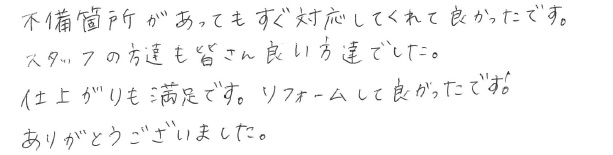 不備箇所があってもすぐ対応してくれて良かったです。
スタッフの方達も皆さん良い方達でした。
仕上がりも満足です。リフォームして良かったです!
ありがとうございました。